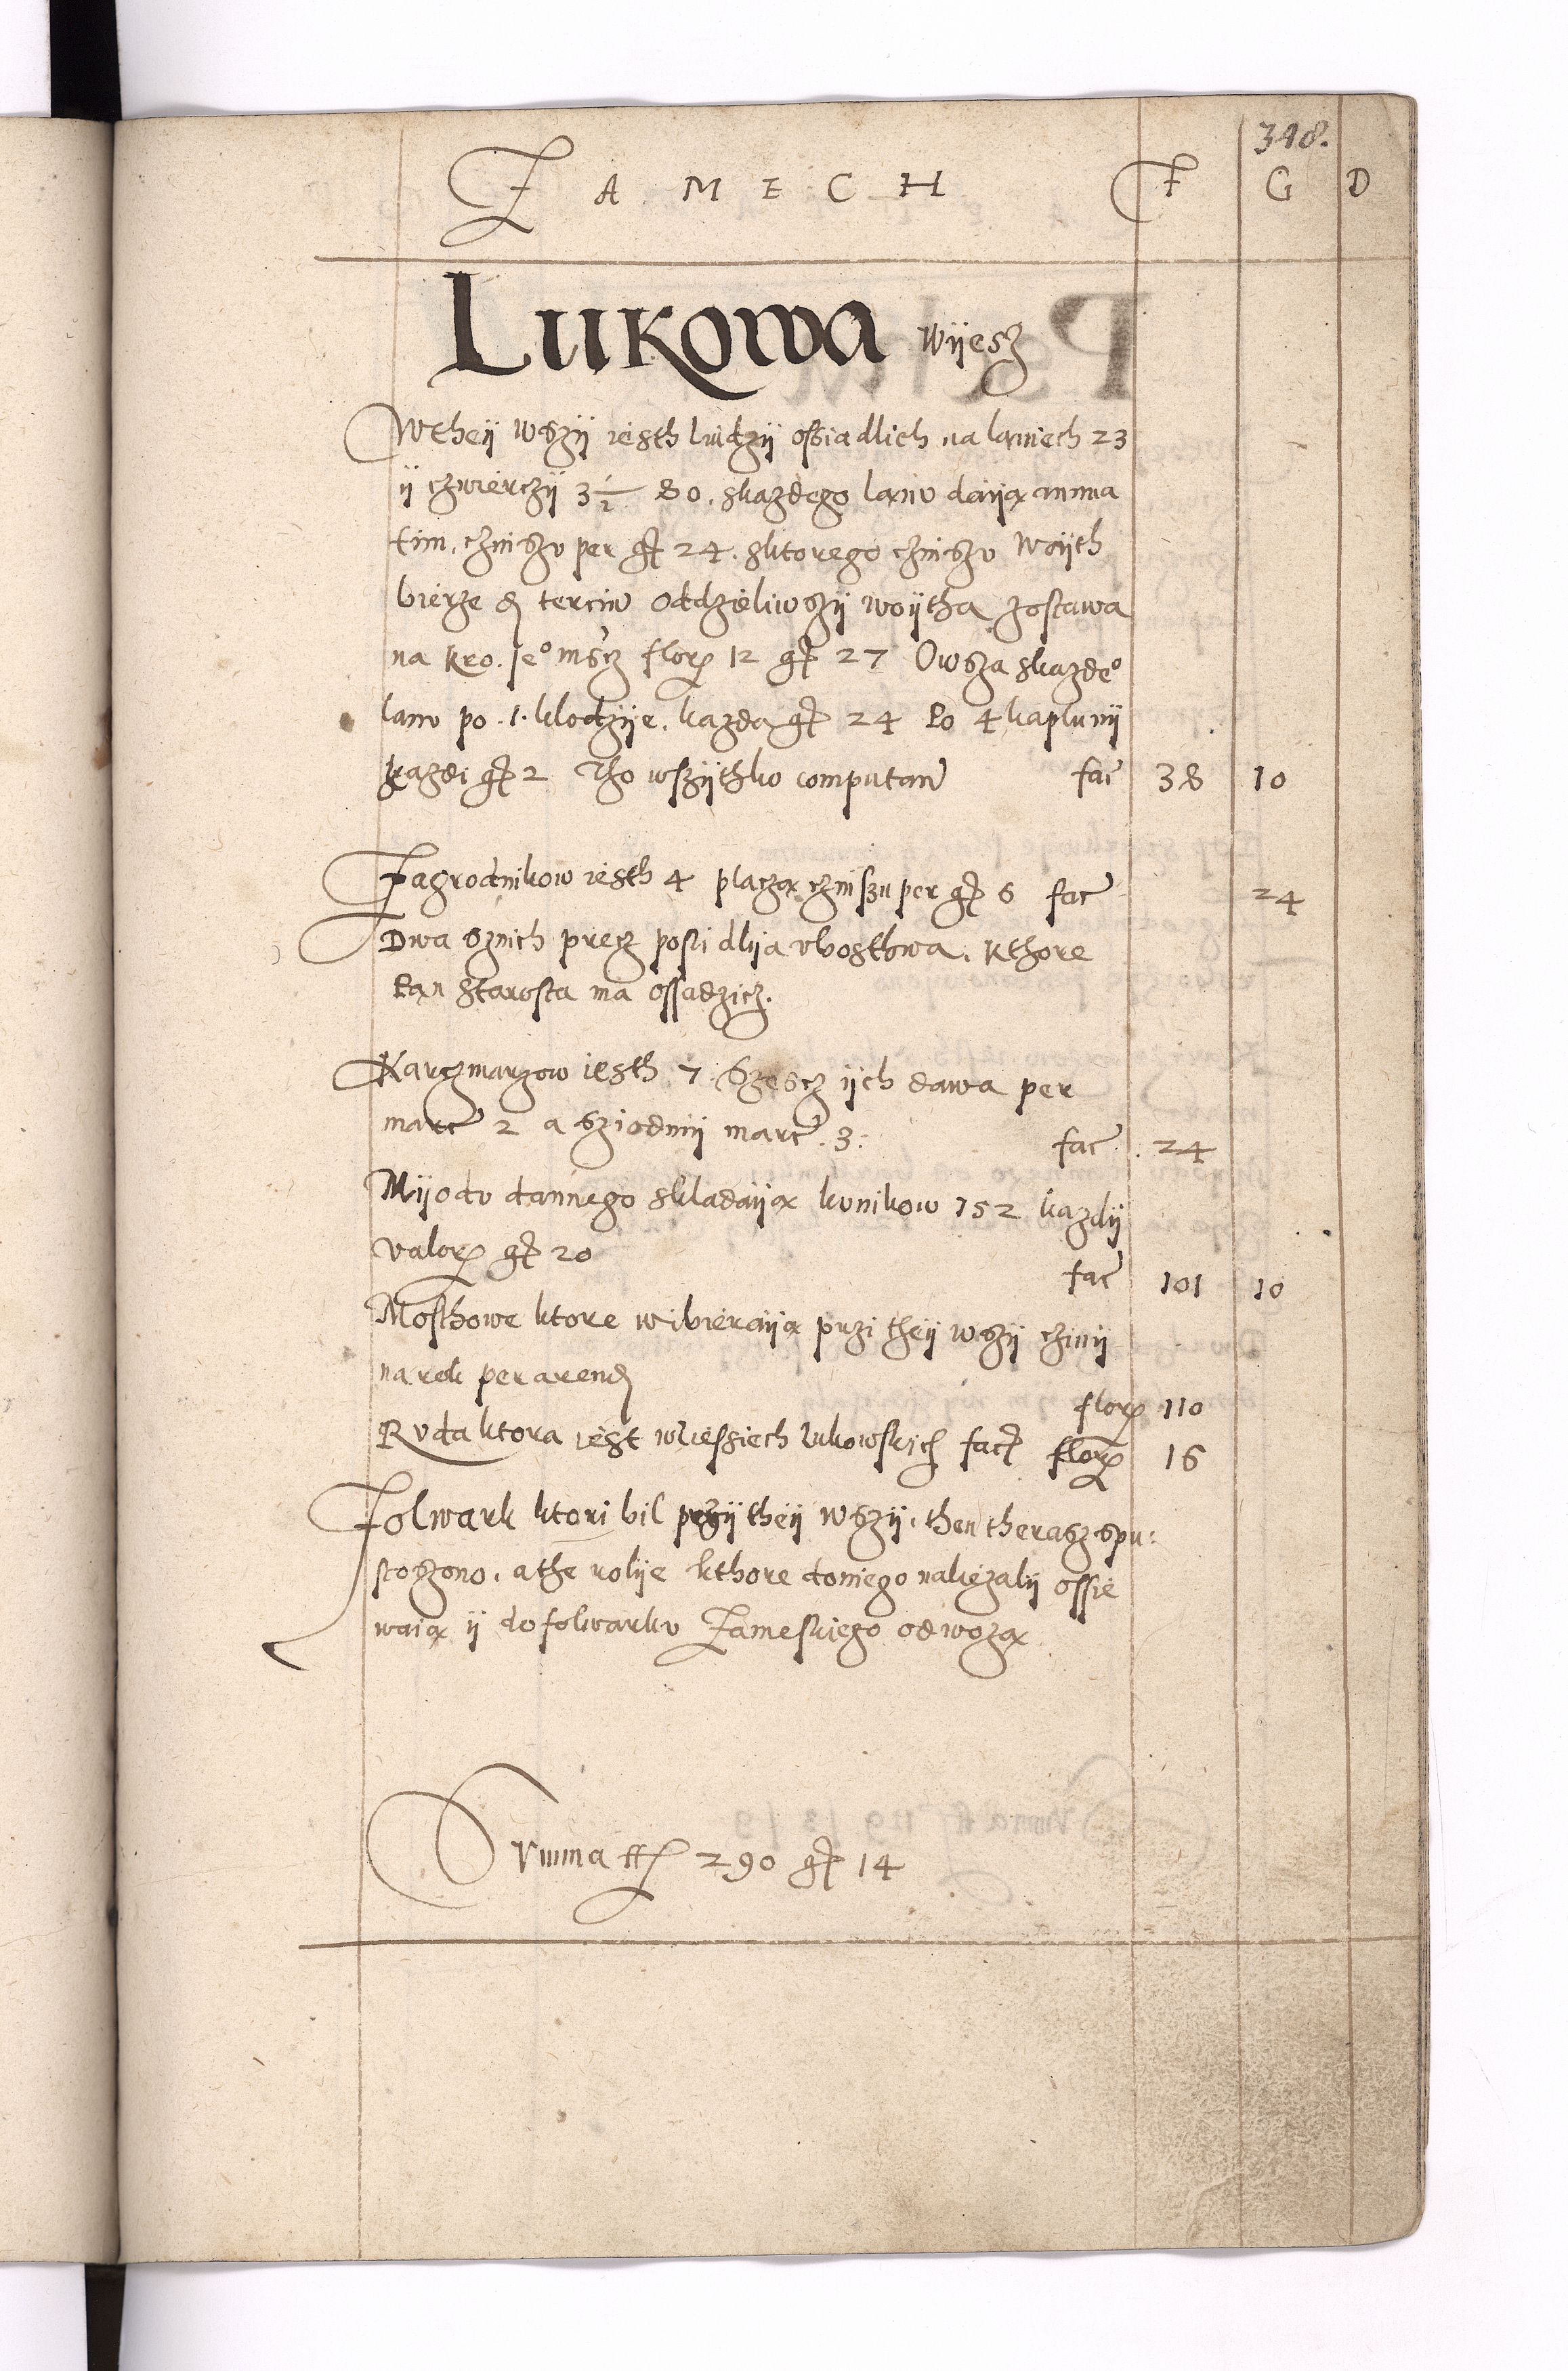 348.
ZAMECH F G D
Lukowa wijesz
Wtheij wszij iesth ludzij ossiadlich na laniech 23
ij czwierczij 3½ 80. skazdego lanu daiją anua
tim, czinszu per gͬ 24. sktorego czinszu woijth
bierze terciu oddzieliwszij woijtha zostawa
na kro. Jeº msćz florͬ 12 gͬ 27 Owsza skazdeº
lanu po .1. klodzije. kazda gͬ 24 Po 4 kaplunij
kazdi gͬ 2 Tho wszijthko computan̄ fac̄ 38 10
Zagrodnikow iesth 4 placzą czinszu per gͬ 6 fac̄ 24
Dwa sznich precz posli dlija vbosthwa. kthore
Pan starosta ma ossadzicz.
Karczmarzow iesth 7. Szescz ijch dawa per
marc̄ 2 a sziodmij marc̄ .3: fac̄ 24
Mijodu dannego skladaiją kunikow 152 kazdij
valorͬ gͬ 20 fac̄ 101 10
Mosthowe ktore wibieraiją przi theij wszij czinij
na rok per arend florͬ 110
Ruda ktora iest wliessiech lukowskich facͭ florͬ 16
Folwark ktori bil przij theij wszij, then therasz spu:
stoszono, a the rolije kthore doniego nalezalij ossie
waią ij do folwarku Zameskiego odwozą
Summa ffͬ 290 gͬ 14